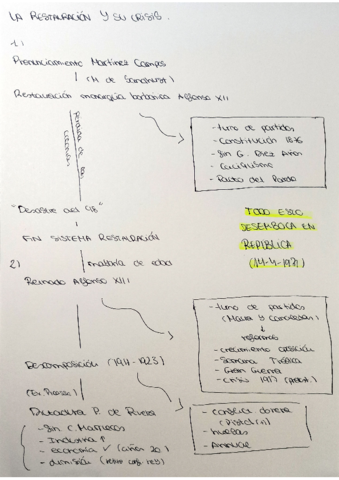 LA RESTAURACIÓN Y SU CRISIS.
1)
Pronunciamiento Martínez Campos
(M. de Sandhurst)
Restauración monarquía borbónica Alfonso XII
Pérdida de las colonias
- turno de partidos
- Constitución 1876
- fin G. Diez Años
- Caciquismo
- Pacto del Pardo
"Desastre del 98"
FIN SISTEMA RESTAURACIÓN
TODO ESTO
DESEMBOCA EN
REPÚBLICA
(14-4-1931)
2)
mayoría de edad
Reinado Alfonso XIII
- turno de partidos
(Maura y Canalejas)
reformas
- crecimiento oposición
- Semana Trágica
- Gran Guerra
- crisis 1917
Descomposición (1914-1923)
Dictadura P. de Rivera
- fin C. Marruecos
- Industria ↑
- economía ✓ (años 20)
- dimisión
- conflicto obrero
- huelgas
- Annual